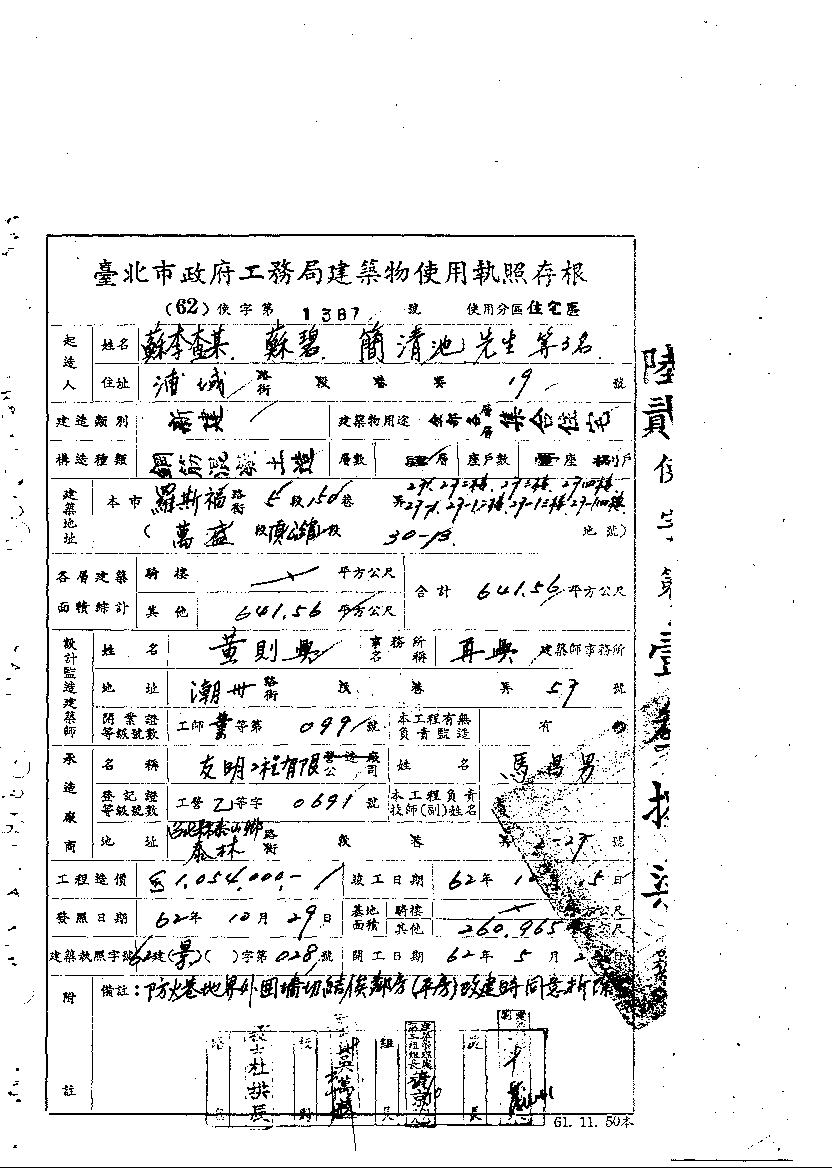 臺北市政府工務局建築物使用執照存根
(62)使字第 1387 號 使用分區 住宅區
起造人 姓名 蘇李查某. 蘇碧. 簡清池 先生等3名
住址 浦城 路街 段 巷 弄 19 號
建造類別 新建 建築物用途 層 集合住宅
構造種類 鋼筋混凝土造 層數 層 座戶數 壹座 捌戶
建築地址 本市 羅斯福 路街 5 段 150 巷 弄 27, 27-二樓, 27-三樓, 27-四樓
27-1, 27-1二樓, 27-1三樓, 27-1四樓
(萬盛 段 頂公館 小段 30-13 地號)
各層建築面積綜計 騎樓 平方公尺 合計 641.56 平方公尺
其他 641.56 平方公尺
設計監造建築師 姓名 黃則興 事務所名稱 再興 建築師事務所
地址 潮州 路街 段 巷 弄 57 號
開業證等級號數 工師 業 等第 0991 號 本工程有無負責監造 有
承造廠商 名稱 友明工程有限 營造廠公司 姓名 馬昌男
登記證等級號數 工營 乙 等字 0691 號 本工程負責技師(副)姓名
地址 台北縣泰山鄉泰林 路街 段 巷 弄 2-27 號
工程造價 1,054,000.- 竣工日期 62年 10 月 5日
發照日期 62年 10月 29日 基地面積 騎樓 平方公尺
其他 260.965 平方公尺
建築執照字號 62建(景)( )字第 028 號 開工日期 62年 5月 2
附註 備註:防火巷地界外圍牆切結俟鄰房(平房)改建時同意拆除
技士杜拱辰 校對 組長
61. 11. 50本
陸貳使字第壹